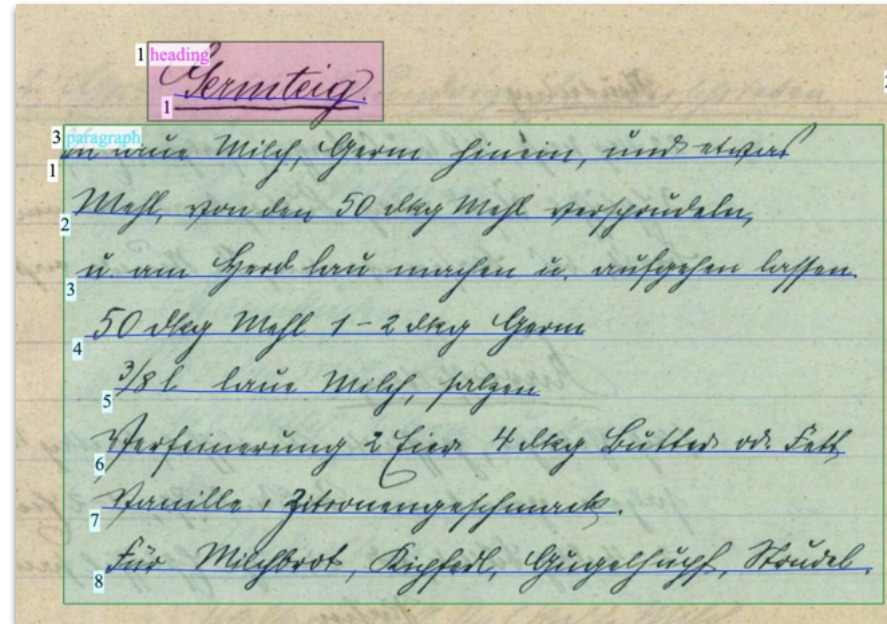 1 heading
Germteig.
1
3 paragraph
In laue Milch, Germ hinein, und etwas
1
Mehl, von den 50 dkg Mehl versprudeln,
2
u. am Herd lau machen u. aufgehen lassen.
3
50 dkg Mehl 1-2 dkg Germ
4
3/8 l laue Milch, salzen
5
Verfeinerung 2 Eier 4 dkg Butter od. Fett
6
Vanille, Zitronengeschmack.
7
Für Milchbrot, Kipferl, Gugelhupf, Strudel.
8